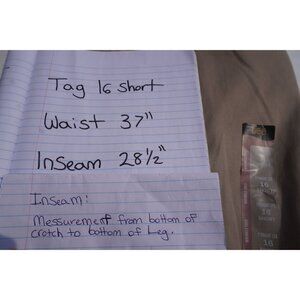 Tag 16 short
Waist 37"
Inseam 28½"
Inseam:
Messurement from bottom of
crotch to bottom of Leg.
16
SHORT
16
SHORT
16